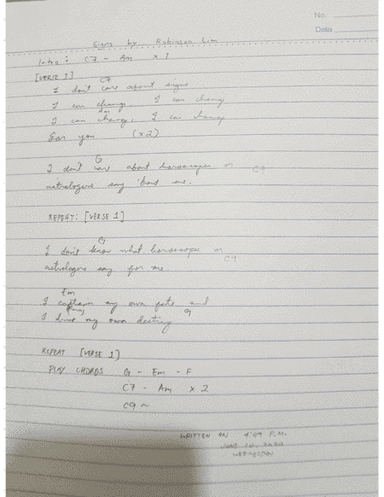 No.
Date
Signs by Robinson Lim
Intro: C7 - Am x 1
[VERSE 1] C7
I don't care about signs
I can change, I can change
Am
I can change, I can change
For you (x2)
G
I don't care about horoscopes or C9
astrologers say 'bout me.
REPEAT: [VERSE 1]
G
I don't know what horoscopes or C9
astrologers say for me.
Fm
I captain my own fate and
G
I live my own destiny
REPEAT [VERSE 1]
PLAY CHORDS G - Em - F
C7 - Am x 2
C9 ~
WRITTEN ON 4:09 P.M.
JUNE